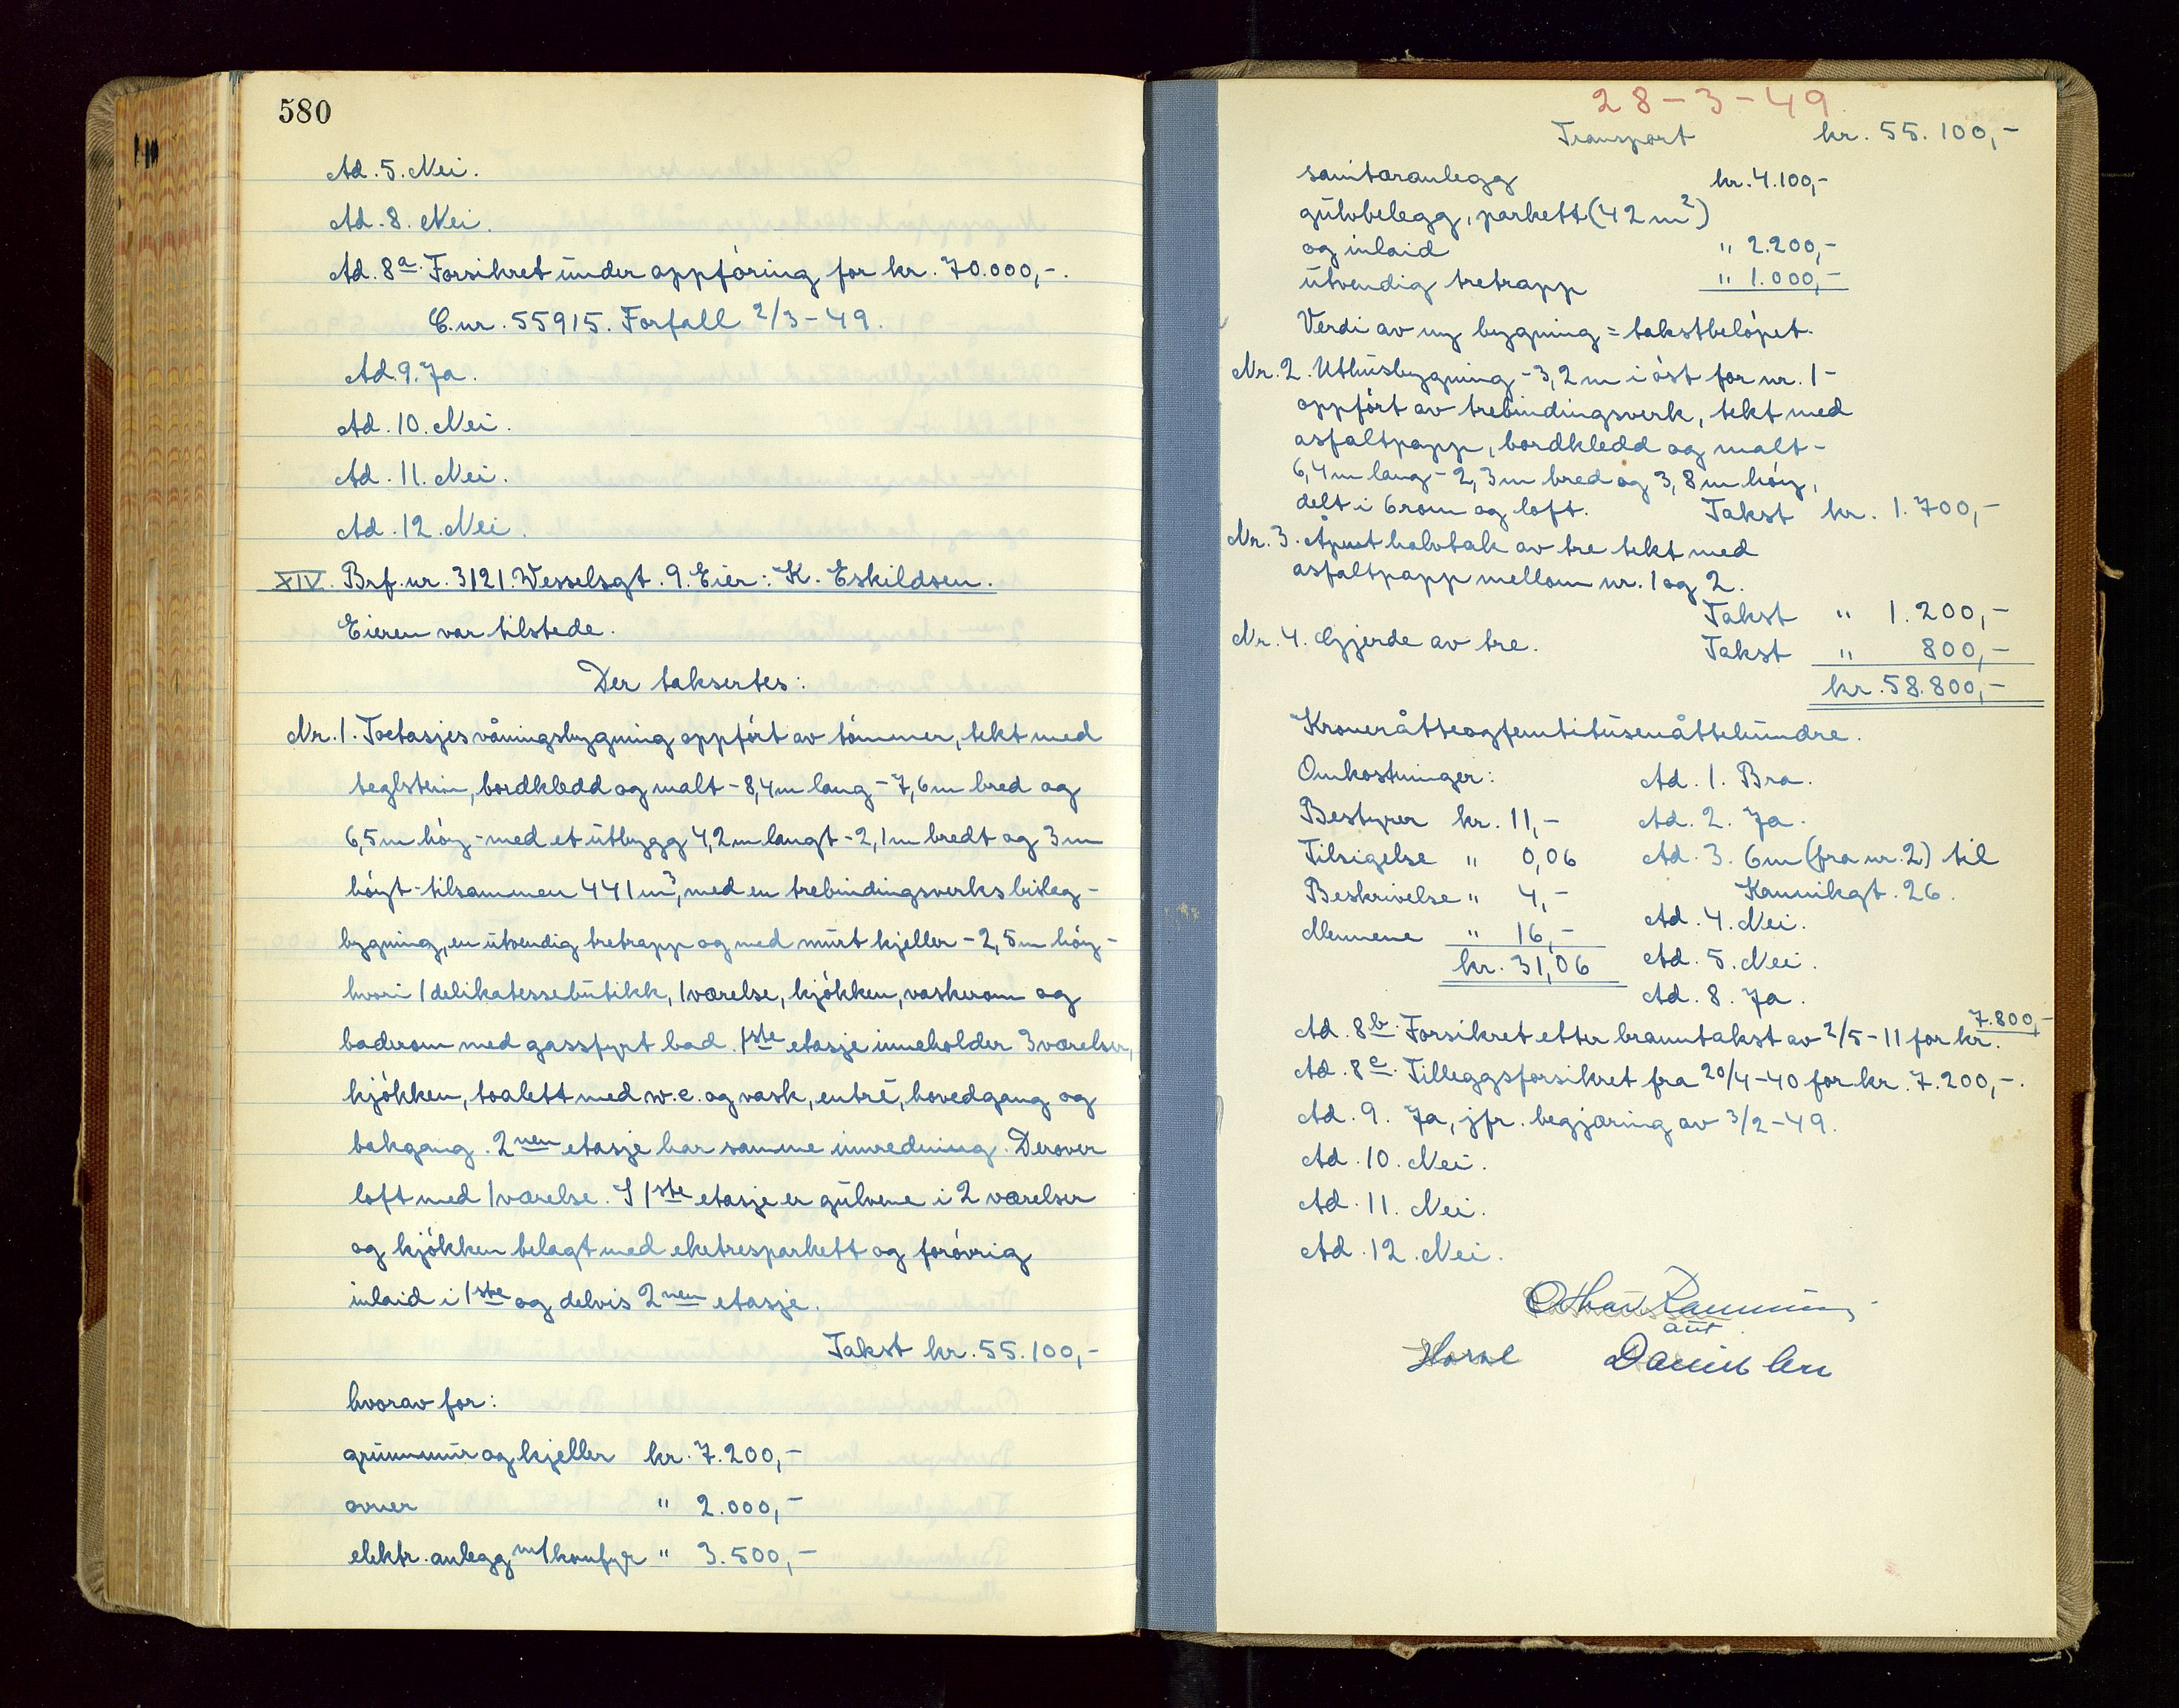 580
Ad. 5. Nei.
Ad. 8. Nei.
Ad. 8a. Forsikret under oppföring for kr. 70.000,-.
C.nr. 55915. Forfall 2/3-49.
Ad. 9. Ja.
Ad. 10. Nei.
Ad. 11. Nei.
Ad. 12. Nei.
XIV. Brf. nr. 3121. Wesselsgt. 9. Eier: K. Eskildsen.
Eieren var tilstede.
Der taksertes:
Nr. 1. Toetasjes våningsbygning oppfört av tömmer, tekt med
teglstein, bordkledd og malt - 8,4 m lang - 7,6 m bred og
6,5 m höy - med et utbygg 4,2 m langt - 2,1 m bredt og 3 m
höyt - tilsammen 441 m³, med en trebindingsverks bisleg-
bygning, en utvendig tretrapp og med murt kjeller - 2,5 m höy -
hvori 1 delikatessebutikk, 1 værelse, kjökken, vaskerom og
baderom med gassfyrt bad. 1ste etasje inneholder 3 værelser,
kjökken, toalett med w.c. og vask, entré, hovedgang og
bakgang. 2nen etasje har samme innredning. Derover
loft med 1 værelse. I 1ste etasje er gulvene i 2 værelser
og kjökken belagt med eketresparkett og forövrig
inlaid i 1ste og delvis 2nen etasje.
Takst kr. 55.100,-
hvorav for:
grunnmur og kjeller kr. 7.200,-
ovner " 2.000,-
elektr. anlegg m/komfyr " 3.500,-
28-3-49
Transport kr. 55.100,-
sanitæranlegg kr. 4.100,-
gulvbelegg, parkett (42 m²)
og inlaid " 2.200,-
utvendig tretrapp " 1.000,-
Verdi av ny bygning = takstbelöpet.
Nr. 2. Uthusbygning - 3,2 m i öst for nr. 1 -
oppfört av trebindingsverk, tekt med
asfaltpapp, bordkledd og malt -
6,4 m lang - 2,3 m bred og 3,8 m höy,
delt i 6 rom og loft. Takst kr. 1.700,-
Nr. 3. Åpent halvtak av tre tekt med
asfaltpapp mellom nr. 1 og 2.
Takst " 1.200,-
Nr. 4. Gjerde av tre. Takst " 800,-
kr. 58.800,-
Kroneråtteogfemtitusenåttehundre.
Omkostninger:
Bestyrer kr. 11,-
Tilsigelse " 0,06
Beskrivelse " 4,-
Mennene " 16,-
kr. 31,06
Ad. 1. Bra.
Ad. 2. Ja.
Ad. 3. 6 m (fra nr. 2) til
Kannikgt. 26.
Ad. 4. Nei.
Ad. 5. Nei.
Ad. 8. Ja.
Ad. 8b. Forsikret etter branntakst av 2/5-11 for kr. 7.800,-
Ad. 8c. Tilleggsforsikret fra 20/4-40 for kr. 7.200,-.
Ad. 9. Ja, jfr. begjæring av 3/2-49.
Ad. 10. Nei.
Ad. 11. Nei.
Ad. 12. Nei.